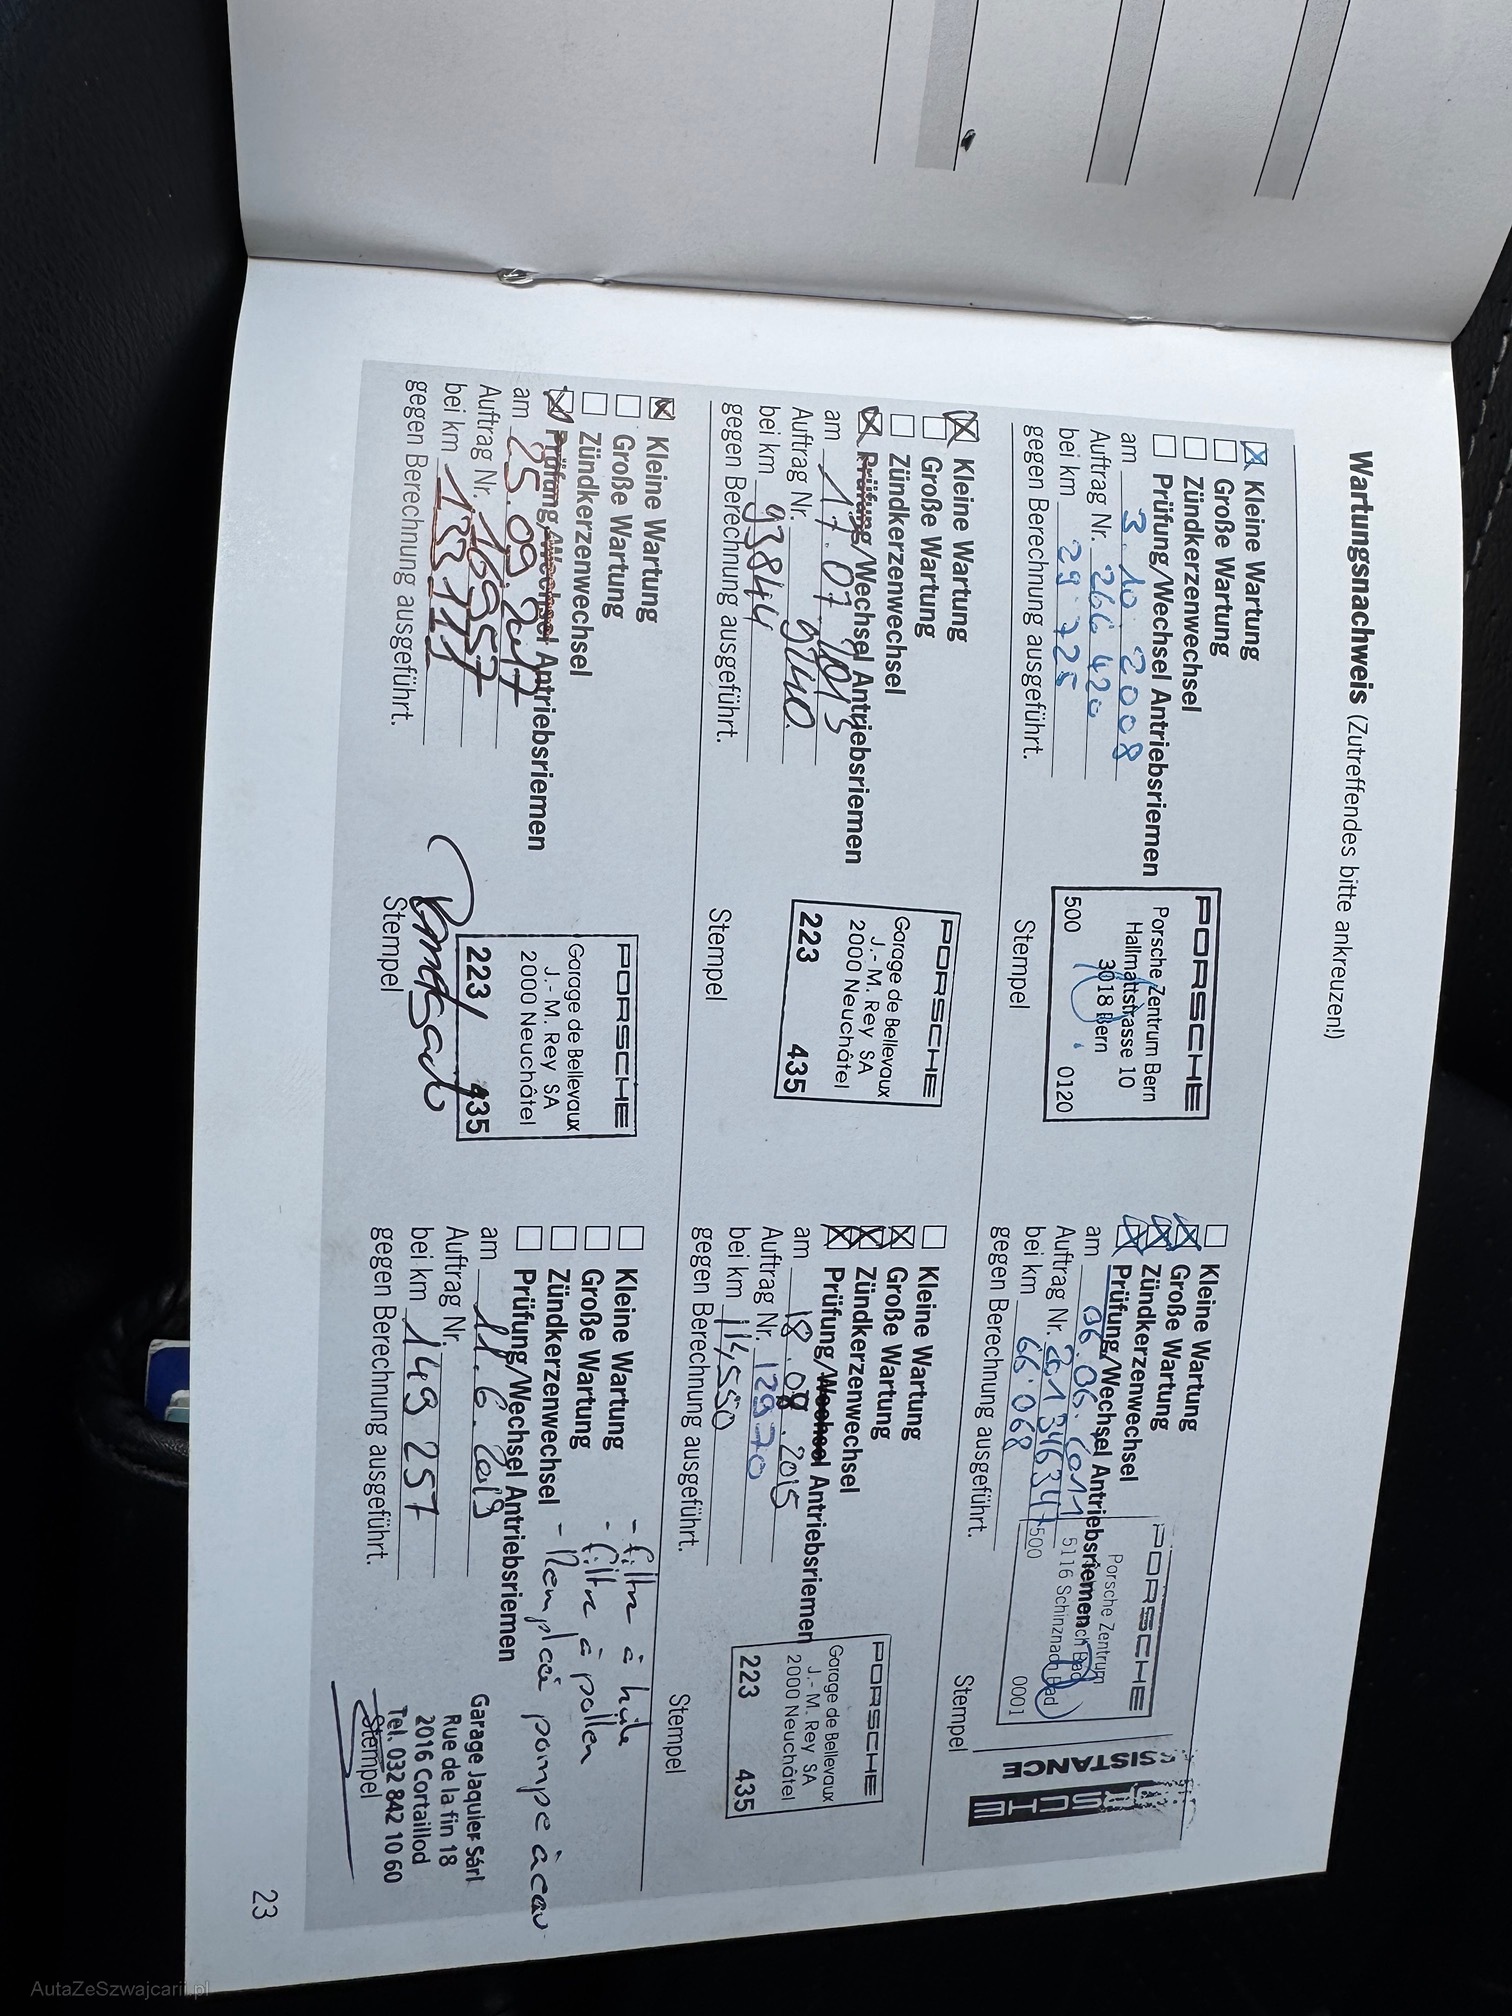 Wartungsnachweis (Zutreffendes bitte ankreuzen!)
Kleine Wartung
Große Wartung
Zündkerzenwechsel
Prüfung/Wechsel Antriebsriemen
am 3. 10. 2008
Auftrag Nr. 266 420
bei km 29'725
gegen Berechnung ausgeführt.
PORSCHE
Porsche Zentrum Bern
Hallmattstrasse 10
3018 Bern
500 0120
Stempel
Kleine Wartung
Große Wartung
Zündkerzenwechsel
Prüfung/Wechsel Antriebsriemen
am 06.06.2011
Auftrag Nr.
bei km 66'068
gegen Berechnung ausgeführt.
PORSCHE
Porsche Zentrum
5116 Schinznach Bad
500 0001
Stempel
SISTANCE
RSCHE
Kleine Wartung
Große Wartung
Zündkerzenwechsel
Prüfung/Wechsel Antriebsriemen
am 17.07.2013
Auftrag Nr. 9740
bei km 93844
gegen Berechnung ausgeführt.
PORSCHE
Garage de Bellevaux
J.- M. Rey SA
2000 Neuchâtel
223 435
Stempel
Kleine Wartung
Große Wartung
Zündkerzenwechsel
Prüfung/Wechsel Antriebsriemen
am 18.08.2015
Auftrag Nr. 12970
bei km 114550
gegen Berechnung ausgeführt.
PORSCHE
Garage de Bellevaux
J.- M. Rey SA
2000 Neuchâtel
223 435
Stempel
Kleine Wartung
Große Wartung
Zündkerzenwechsel
Prüfung/Wechsel Antriebsriemen
am 25.09.2017
Auftrag Nr. 16957
bei km 133111
gegen Berechnung ausgeführt.
PORSCHE
Garage de Bellevaux
J.- M. Rey SA
2000 Neuchâtel
223 435
Stempel
Kleine Wartung
Große Wartung
Zündkerzenwechsel
Prüfung/Wechsel Antriebsriemen
am 11.6.2019
Auftrag Nr.
bei km 149 257
gegen Berechnung ausgeführt.
- filtre à huile
- filtre à pollen
- Remplacé pompe à eau
Garage Jaquier Sàrl
Rue de la fin 18
2016 Cortaillod
Tel. 032 842 10 60
Stempel
23
AutaZeSzwajcarii.pl